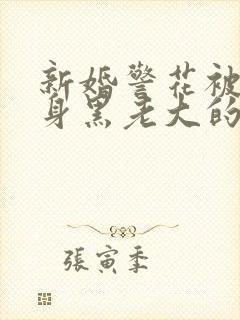 新婚警花被
身黑老大的
張寅季